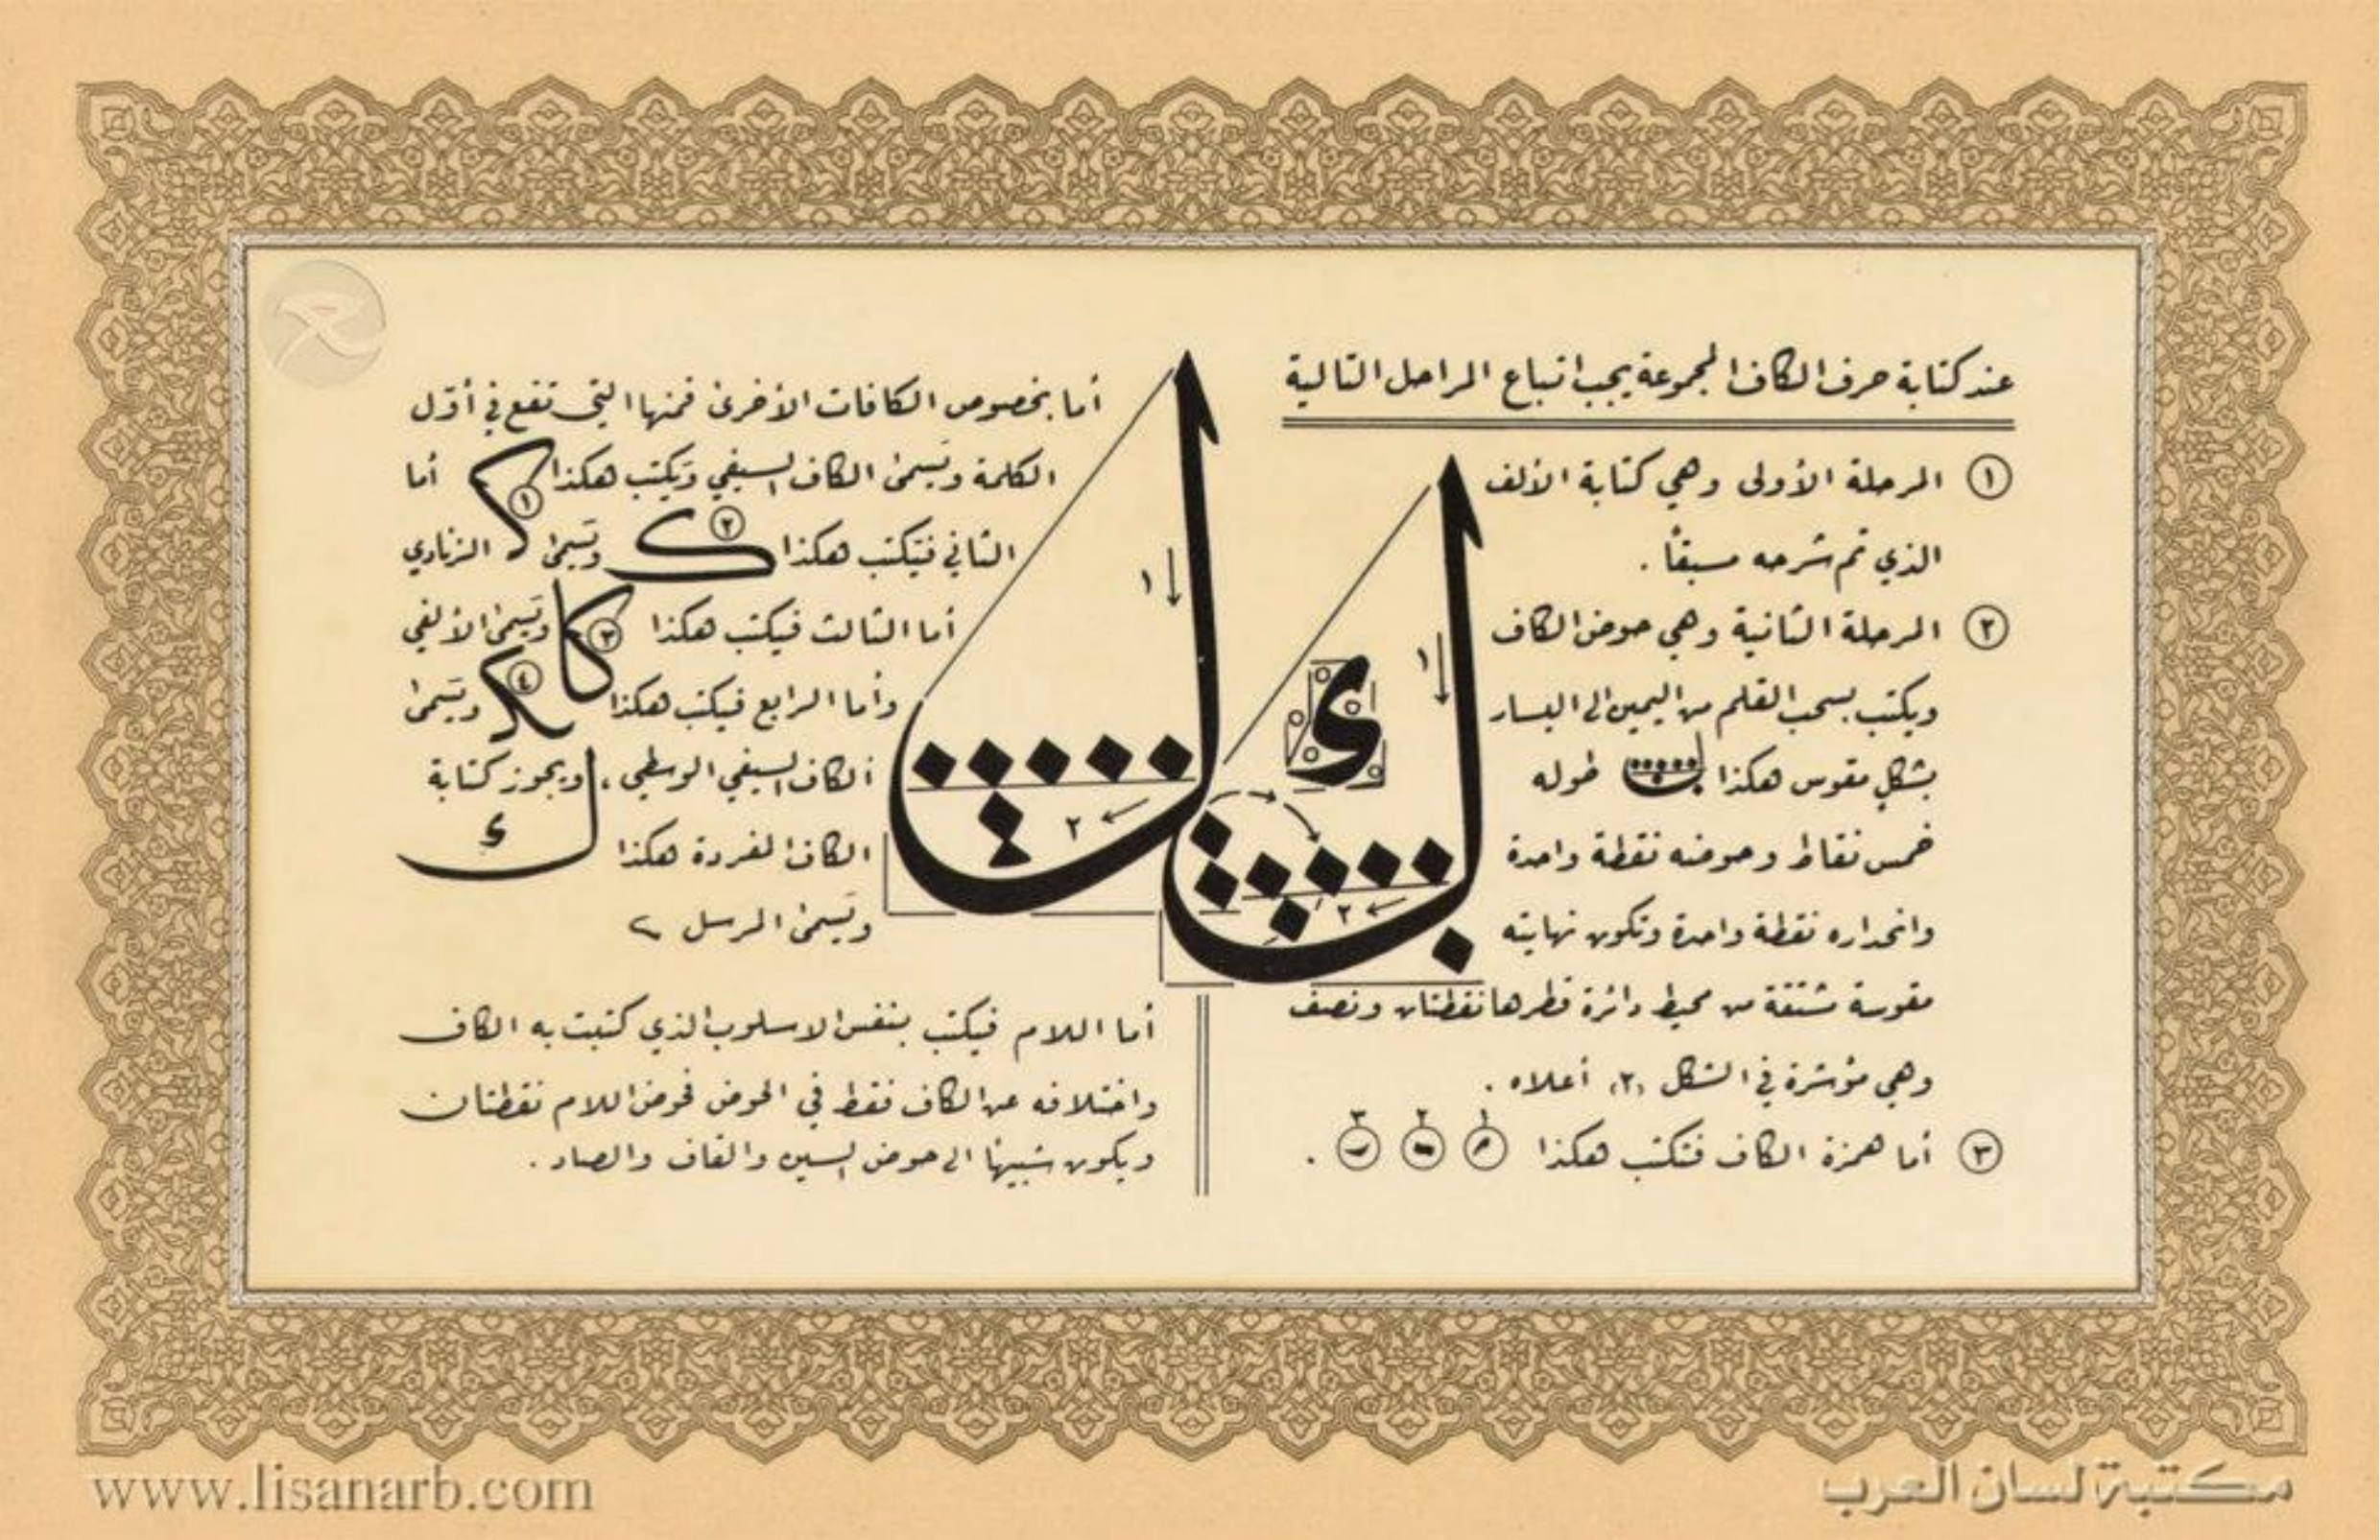 عند كتابة حرف الكاف المجموعة يجب اتباع المراحل التالية
١ المرحلة الأولى وهي كتابة الألف
الذي تم شرحه مسبقاً .
٢ المرحلة الثانية وهي حوض الكاف
ويكتب بسحب القلم من اليمين الى اليسار
بشكل مقوس هكذا طوله
خمس نقاط وحوضه نقطة واحدة
وانحداره نقطة واحدة وتكون نهايته
مقوسة مشتقة من محيط دائرة قطرها نقطتان ونصف
وهي مؤشرة في الشكل (٢) أعلاه .
٣ أما همزة الكاف فتكتب هكذا ١ ٢ ٣ .
ك
ل
١
٢
١
٢
أما بخصوص الكافات الأخرى فمنها التي تقع في أوّل
الكلمة ويسمى الكاف السيفي ويكتب هكذا ١ أما
الثاني فيكتب هكذا ٢ ويسمى الزنادي
أما الثالث فيكتب هكذا كا ٣ ويسمى الألفي
وأما الرابع فيكتب هكذا ٤ ويسمى
الكاف السيفي الوسطي ، ويجوز كتابة
الكاف المفردة هكذا ك
ويسمى المرسل
أما اللام فيكتب بنفس الاسلوب الذي كتبت به الكاف
واختلافه عن الكاف فقط في الحوض فحوض اللام نقطتان
ويكون شبيهاً الى حوض السين والقاف والصاد .
www.lisanarb.com
مكتبة لسان العرب